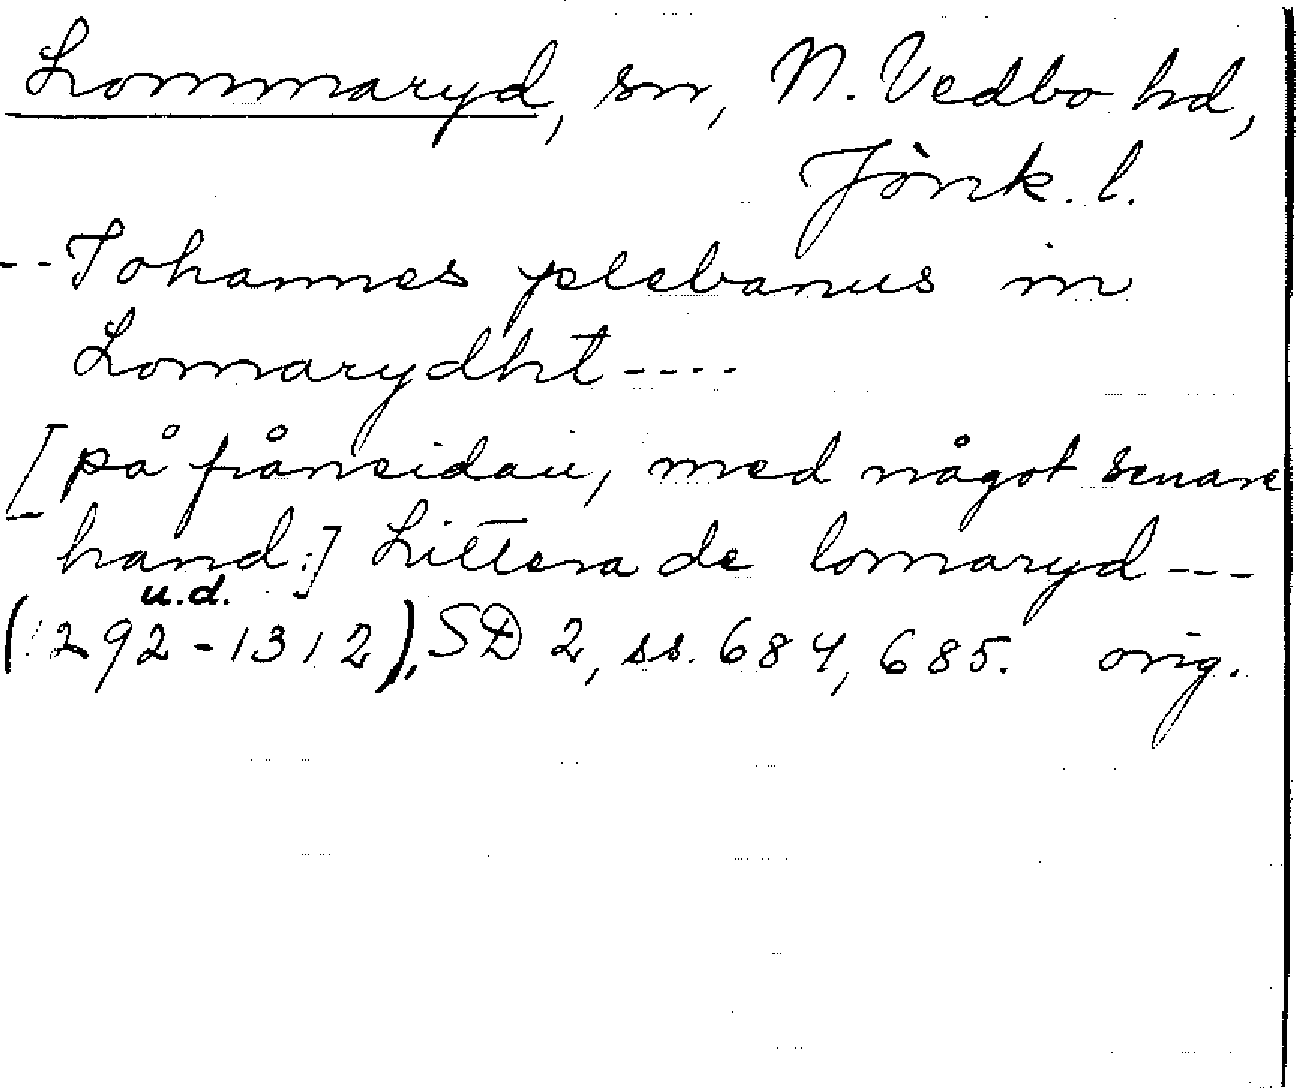 Lommaryd, sn, N. Vedbo hd,
Jönk. l.
-- Johannes plebanus in
Lomarydht ----
[på frånsidan, med något senare
hand:] Littera de lomaryd ---
u.d.
(1292-1312), SD 2, ss. 684, 685. orig.